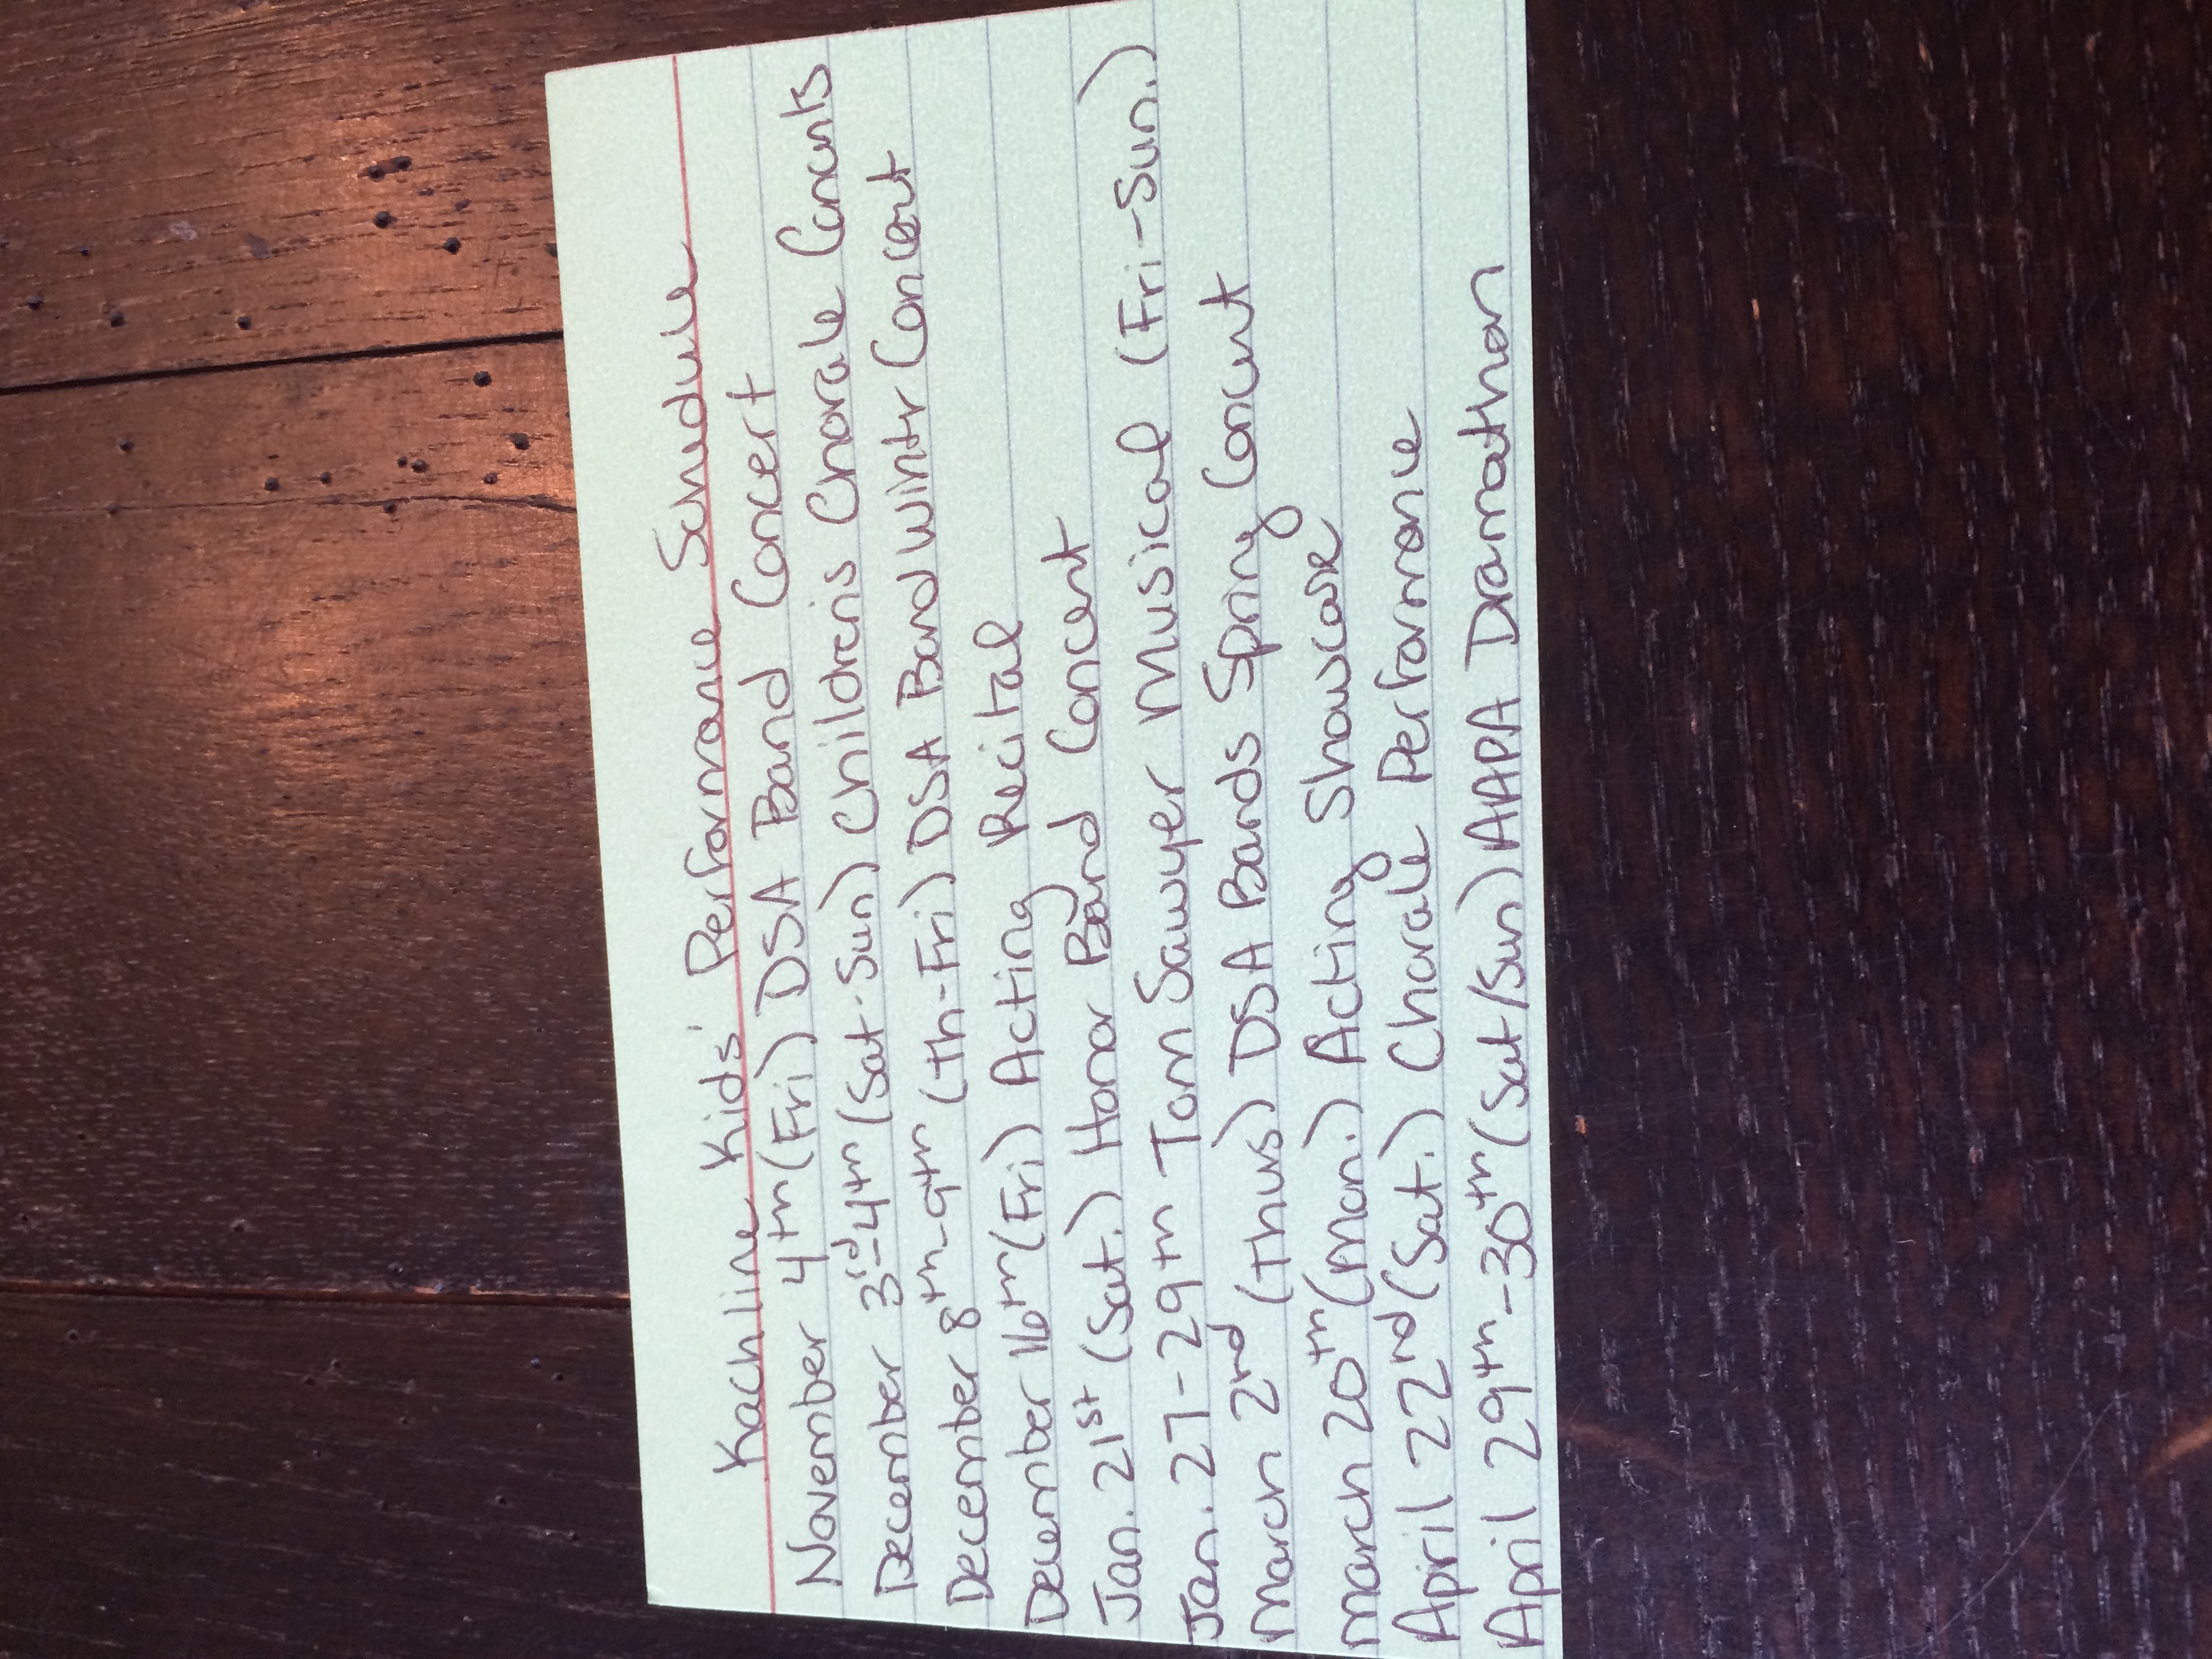 Kachline Kids' Performance Schedule
November 4th (Fri) DSA Band Concert
December 3rd-4th (Sat-Sun) Children's Chorale Concerts
December 8th-9th (th-Fri) DSA Band Wintr Concert
December 16th (Fri) Acting Recital
Jan. 21st (Sat.) Honor Band Concert
Jan. 27-29th Tom Sawyer Musical (Fri-Sun.)
March 2nd (thus) DSA Bands Spring Concert
March 20th (Mon.) Acting Showcase
April 22nd (Sat.) Chorale Performance
April 29th-30th (Sat/Sun) AAPA Dramathon